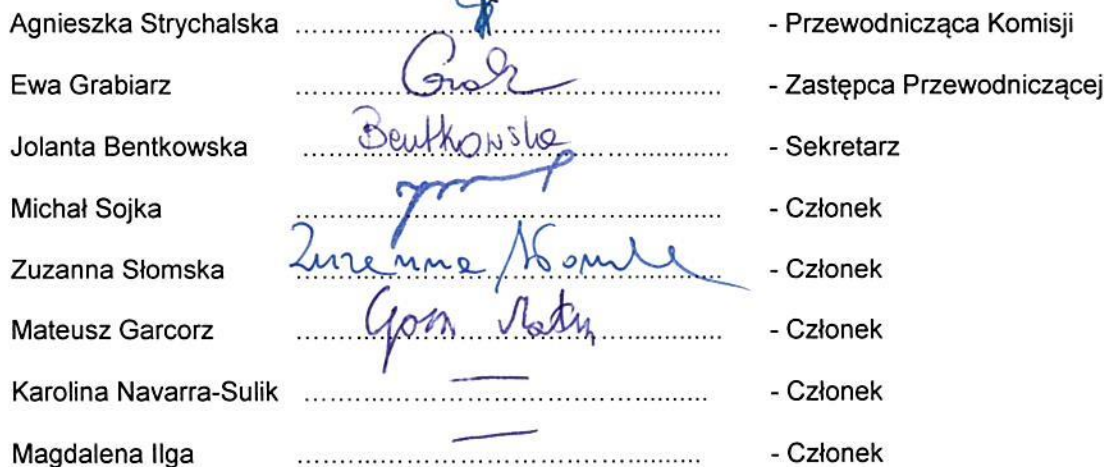 Agnieszka Strychalska ........................................ - Przewodnicząca Komisji
Ewa Grabiarz ........................................ - Zastępca Przewodniczącej
Jolanta Bentkowska ........Bentkowska........ - Sekretarz
Michał Sojka ........................................ - Członek
Zuzanna Słomska ........Zuzanna........ - Członek
Mateusz Garcorz ........................................ - Członek
Karolina Navarra-Sulik ........................................ - Członek
Magdalena Ilga ........................................ - Członek